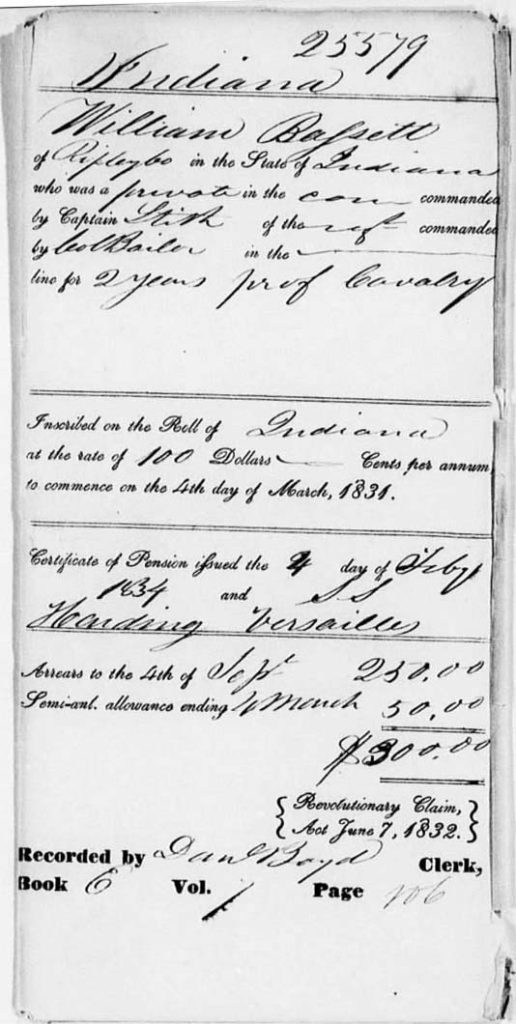 25579
Indiana
William Bassett
of Ripleyco in the State of Indiana
who was a private in the com commanded
by Captain Stith of the regt commanded
by Col Bailor in the
line for 2 years prof Cavalry
Inscribed on the Roll of Indiana
at the rate of 100 Dollars Cents per annum,
to commence on the 4th day of March, 1831.
Certificate of Pension issued the 4 day of Feby
1834 and
Harding Versailles
Arrears to the 4th of Sept 250.00
Semi-anl. allowance ending 4 March 50.00
$300.00
{ Revolutionary Claim, }
{ Act June 7, 1832. }
Recorded by Danl Boyd Clerk,
Book E Vol. 1 Page 106